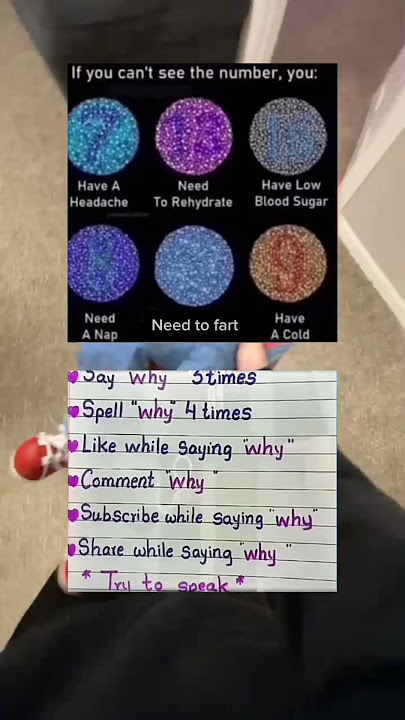 If you can't see the number, you:
7
13
16
Have A
Headache
Need
To Rehydrate
Have Low
Blood Sugar
8
9
Need
A Nap
Need to fart
Have
A Cold
Say "why" 5 times
Spell "why" 4 times
Like while saying "why"
Comment "why"
Subscribe while saying "why"
Share while saying "why"
* Try to speak *